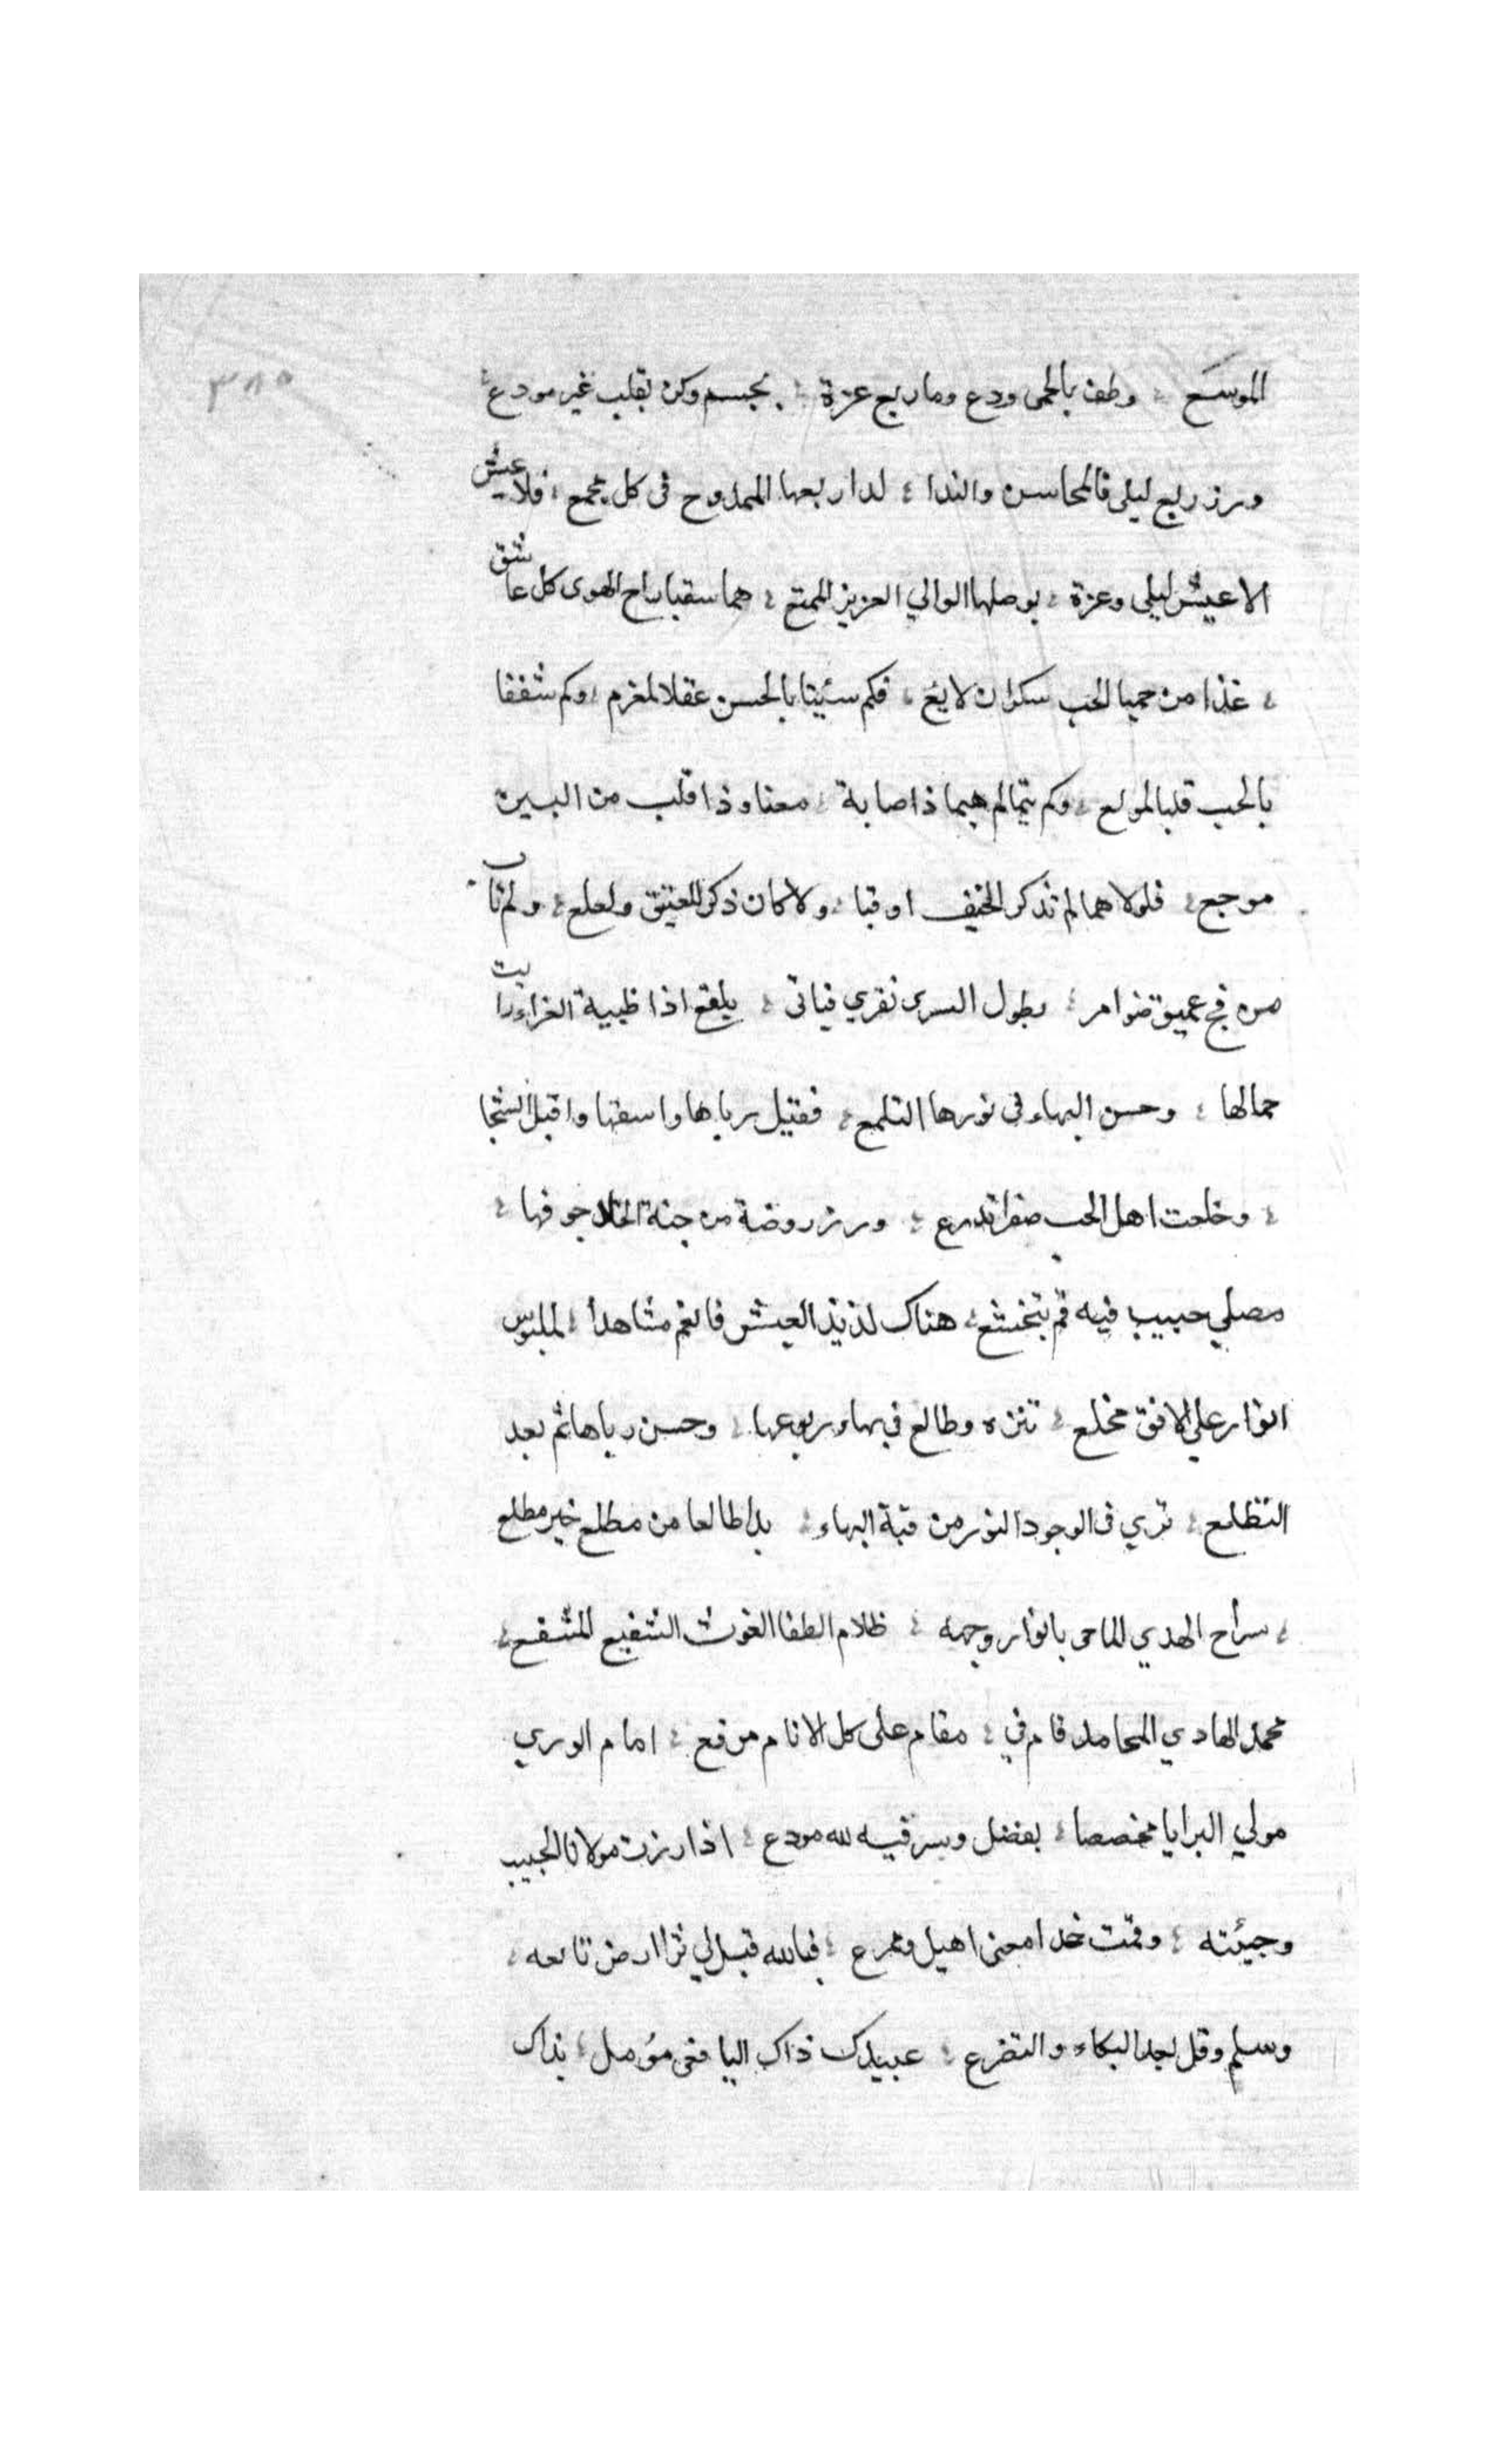 ٣٨٥
الموسع ؛ وطف بالحمى ودع وما ربع عزة ؛ بجسم وكن بقلب غير مودع ؛
وزر ربع ليلى فالمحاسن والندا ؛ لدا ربعها الممدوح في كل مجمع ؛ فلا عيش
الا عيش ليلى وعزة ؛ بوصلها الوالي العزيز الممتع ؛ هما سقيا براح الهوى كل عاشق
؛ غذا من حميا الحب سكران لا يع ؛ فكم سبتا بالحسن عقلا لمغرم ؛ وكم شففا
بالحب قلبا لمولع ؛ وكم تيما لم هيما ذا صابة ؛ معنا وذا قلب من البين
موجع ؛ فلولا هما لم تذكر الخيف او قبا ؛ ولا كان ذكر للعقيق ولعلع ؛ ولم تات
من فج عميق ضوامر ؛ بطول السرى تفري فيافي ؛ يلقع اذا ظبية الغراء رايت
جمالها ؛ وحسن البهاء في نورها التلمع ؛ فقتيل رباها واسفها واقبل الشجا
؛ وخلعت اهل الحب صفرا تدرع ؛ وزر روضة من جنة الخلد جوفها ؛
مصلي حبيب فيه قم بتخشع ؛ هناك لذيذ العيش فانعم مشاهدا ؛ لملبوس
انوار علي الافق مخلع ؛ تنزه وطالع في بهاء ربوعها ؛ وحسن رباها ثم بعد
التطلع ؛ تري في الوجود النور من قبة البهاء ؛ بدا طالعا من مطلع خير مطلع
؛ سراج الهدي الماحى بانوار وجهه ؛ ظلام الطغا الغوث الشفيع المشفع ؛
محمد الهادي المحامد قام في ؛ مقام على كل الانام مرفع ؛ امام الوري
مولي البرايا مخصصا ؛ بفضل وسر فيه لله مودع ؛ اذا زرت مولانا الحبيب
وجيئته ؛ وقمت خدا معنى اهيل ومرع ؛ فبالله قبل لي ثرا ارض تابعه ؛
وسلم وقل بعد البكاء والتضرع ؛ عبيدك ذاك اليافعى مؤمل ؛ بذاك